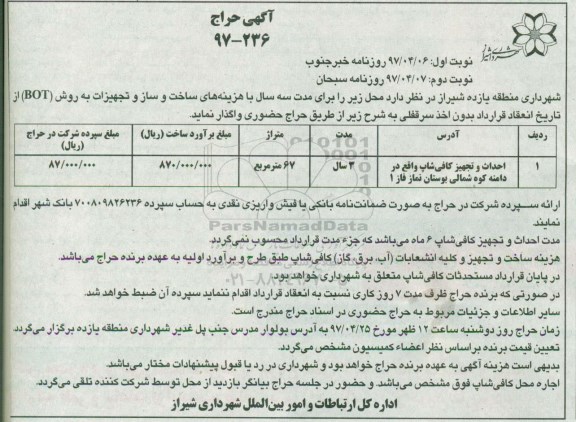 آگهی حراج
۹۷-۲۳۶
شهرداری شیراز
نوبت اول: ۹۷/۰۴/۰۶ روزنامه خبرجنوب
نوبت دوم: ۹۷/۰۴/۰۷ روزنامه سبحان
شهرداری منطقه یازده شیراز در نظر دارد محل زیر را برای مدت سه سال با هزینه‌های ساخت و ساز و تجهیزات به روش (BOT) از
تاریخ انعقاد قرارداد بدون اخذ سرقفلی به شرح زیر از طریق حراج حضوری واگذار نماید.
ردیف آدرس مدت متراژ مبلغ برآورد ساخت (ریال) مبلغ سپرده شرکت در حراج (ریال)
۱ احداث و تجهیز کافی‌شاپ واقع در دامنه کوه شمالی بوستان نماز فاز ۱ ۳ سال ۶۷ مترمربع ۸۷۰/۰۰۰/۰۰۰ ۸۷/۰۰۰/۰۰۰
ارائه سپرده شرکت در حراج به صورت ضمانت‌نامه بانکی یا فیش واریزی نقدی به حساب سپرده ۷۰۰۸۰۹۸۲۶۲۳۶ بانک شهر اقدام
نمایند
مدت احداث و تجهیز کافی‌شاپ ۶ ماه می‌باشد که جزء مدت قرارداد محسوب نمی‌گردد.
هزینه ساخت و تجهیز و کلیه انشعابات (آب، برق، گاز) کافی‌شاپ طبق طرح و برآورد اولیه به عهده برنده حراج می‌باشد.
در پایان قرارداد مستحدثات کافی‌شاپ متعلق به شهرداری خواهد بود.
در صورتی که برنده حراج ظرف مدت ۷ روز کاری نسبت به انعقاد قرارداد اقدام ننماید سپرده آن ضبط خواهد شد.
سایر اطلاعات و جزئیات مربوط به حراج حضوری در اسناد حراج مندرج است.
زمان حراج روز دوشنبه ساعت ۱۲ ظهر مورخ ۹۷/۰۴/۲۵ به آدرس بولوار مدرس جنب پل غدیر شهرداری منطقه یازده برگزار می‌گردد
تعیین قیمت برنده براساس نظر اعضاء کمیسیون مشخص می‌گردد.
بدیهی است هزینه آگهی به عهده برنده حراج خواهد بود و شهرداری در رد یا قبول پیشنهادات مختار می‌باشد.
اجاره محل کافی‌شاپ فوق مشخص می‌باشد. و حضور در جلسه حراج بیانگر بازدید از محل توسط شرکت کننده تلقی می‌گردد.
اداره کل ارتباطات و امور بین‌الملل شهرداری شیراز
ParsNamadData